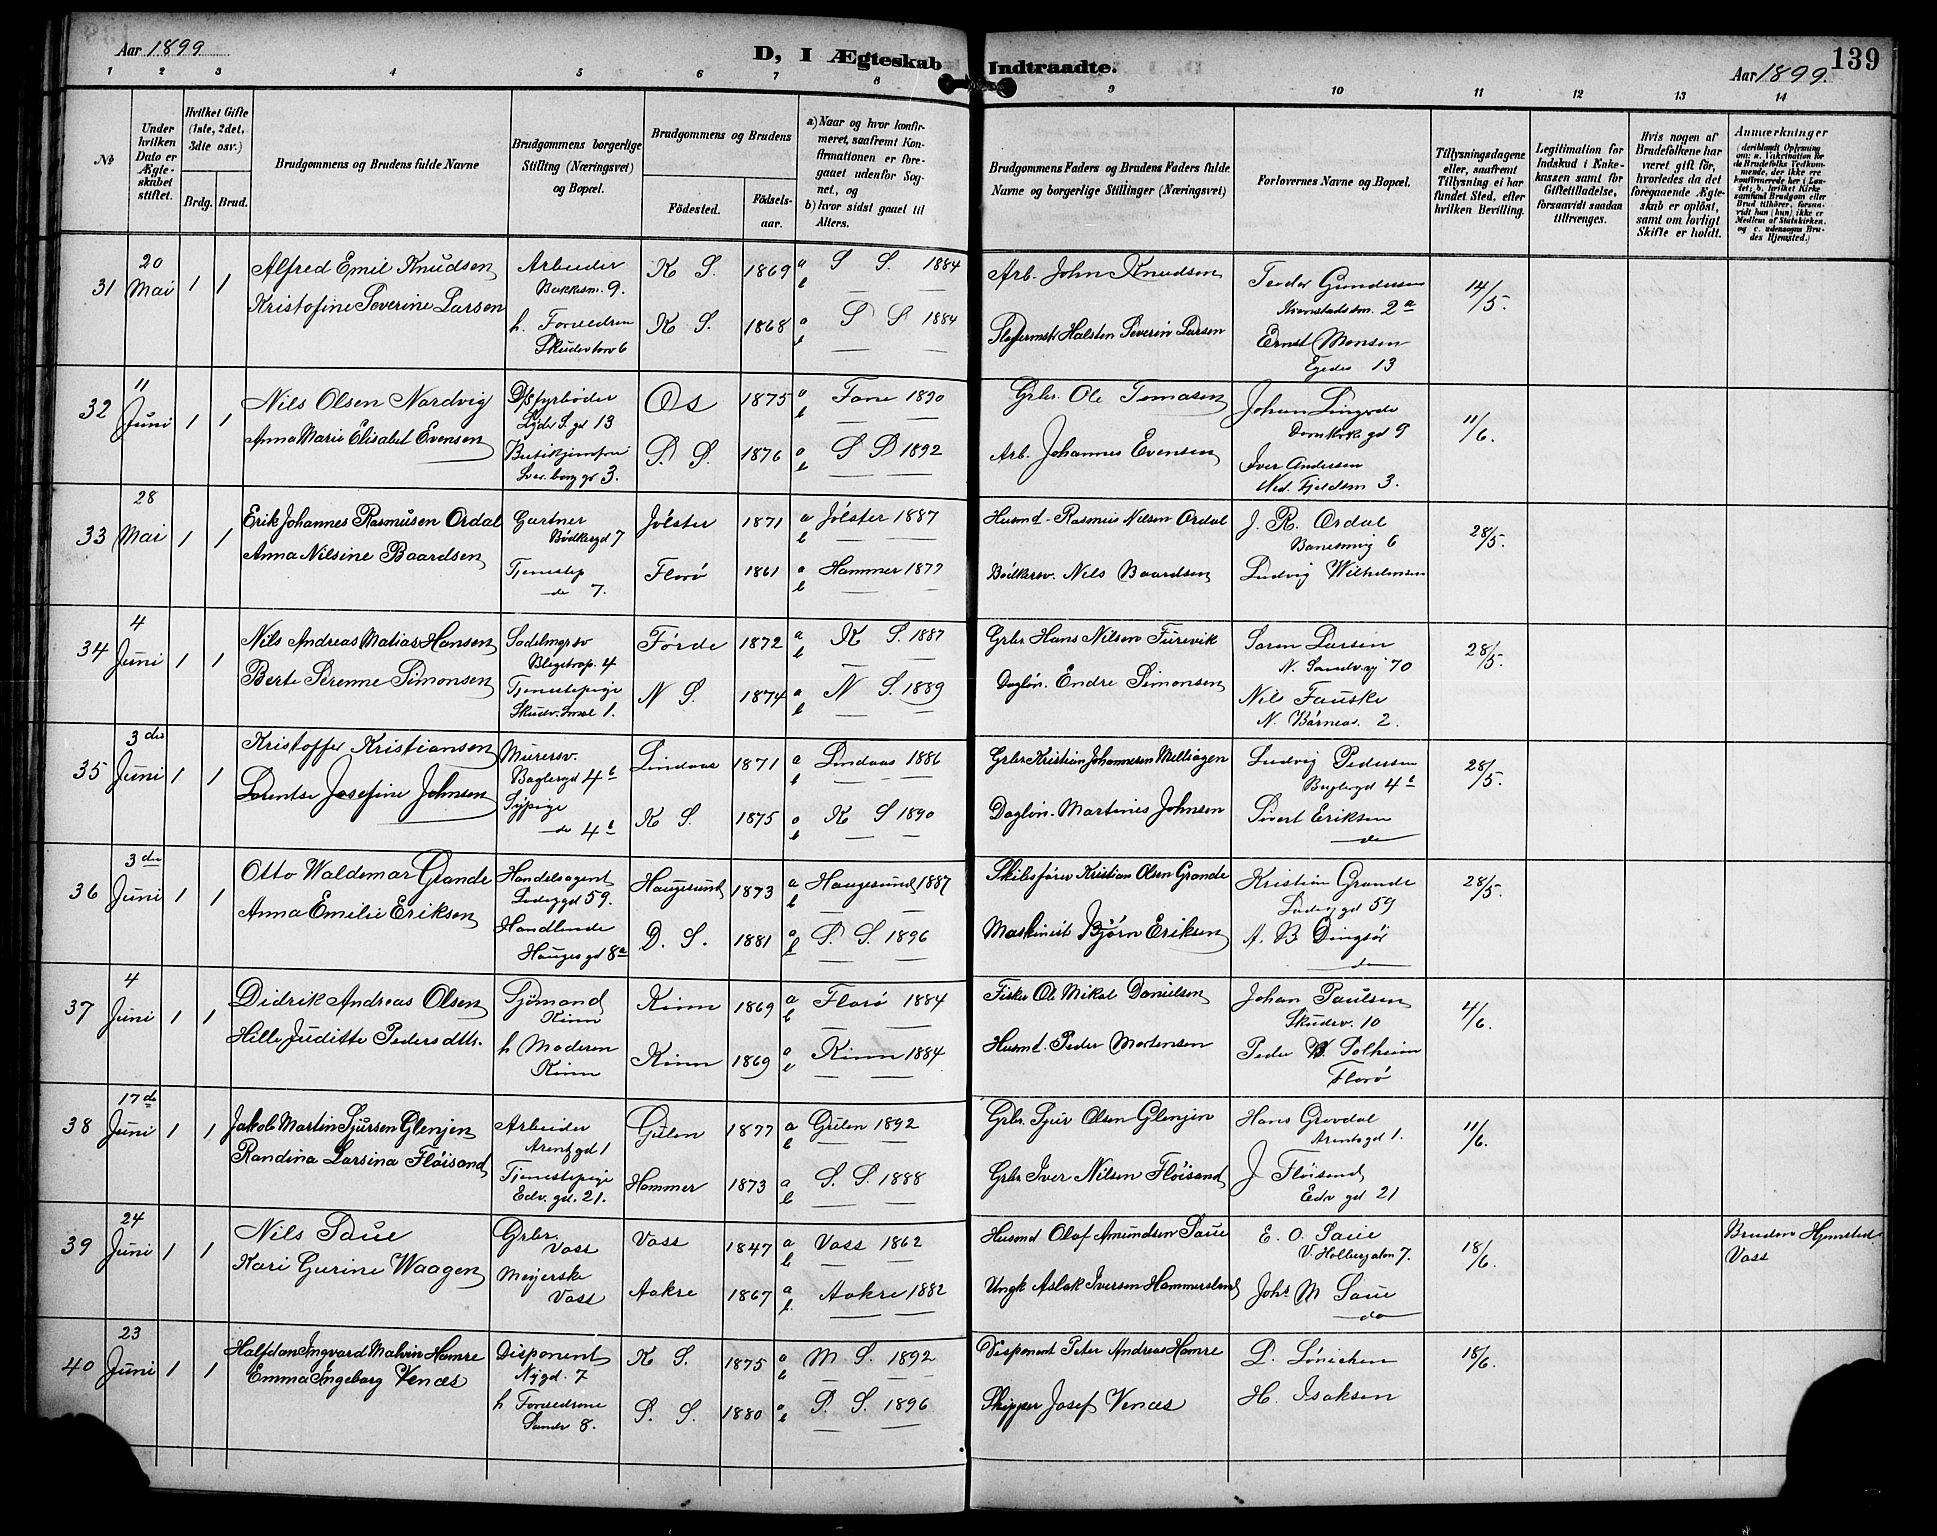 Aar 1899
D, I Ægteskab Indtraadte.
Aar 1899.
139
1 2 3 4 5 6 7 8 9 10 11 12 13 14
No
Under hvilken Dato er Ægteskabet stiftet.
Hvilket Gifte (1ste, 2det, 3die osv.)
Brdg. Brud.
Brudgommens og Brudens fulde Navne
Brudgommens borgerlige Stilling (Næringsvei) og Bopæl.
Brudgommens og Brudens
Fødested. Fødselsaar.
a) Naar og hvor konfirmeret, saafremt Konfirmationen er foregaaet udenfor Sognet, og
b) hvor sidst gaaet til Alters.
Brudgommens Faders og Brudens Faders fulde Navne og borgerlige Stillinger (Næringsvei)
Forlovernes Navne og Bopæl.
Tillysningsdagene eller, saafremt Tillysning ei har fundet Sted, efter hvilken Bevilling.
Legitimation for Indskud i Enkekassen samt for Giftetilladelse, forsaavidt saadan tiltrænges.
Hvis nogen af Brudefolkene har været gift før, hvorledes da det foregaaende Ægteskab er opløst, samt om lovligt Skifte er holdt.
Anmærkninger
31 20 Mai 1 1
Alfred Emil Knudsen Arbeider 9. K S. 1869 a S S. 1884 Arb. John Knudsen Teodor Gundersen 2a 14/5.
Kristofine Severine Larsen h. Forældrene Skudevtorv 6 K S. 1868 a S S 1884 Halsten Severin Larsen Ernst Monsen Egedes 13
32 11 Juni 1 1
Nils Olsen Nordvig D/S fyrbøder 13 Os 1875 a Fane 1890 Grbr. Ole Tomasen Johan Domkirk gd 9 11/6.
Anna Marie Elisabet Evensen 3. S. 1876 a 1892 Arb. Johannes Evensen Iver Andersen Ned. Fjeldsm 3.
33 28 Mai 1 1
Erik Johannes Rasmusen Ordal Gartner Bødkergd 7 Jølster 1871 a Jølster 1887 Husmd. Rasmus Nilsen Ordal J. R. Ordal 6 28/5.
Anna Nilsine Baardsen Tjenestep do 7. Florø 1861 a Hammer 1877 Bødkersv. Nils Baardsen Ludvig Wilhelmsen
34 4 Juni 1 1
Nils Andreas Matias Hansen Sadelmgrsv 4 Førde 1872 a K S. 1887 Grbr Hans Nilsen Furevik Søren Larsen N. Sandvig 70 28/5.
Berte Serenne Simonsen Tjenestepige 1. N S. 1874 a N S. 1889 Dagløn. Endre Simonsen Nils Fauske 2.
35 3die Juni 1 1
Kristoffer Kristiansen Murersv. Baglergd 4b Lindaas 1871 a Lindaas 1886 Grbr Kristian Johannesen Ludvig Pedersen Baglergd 4b 28/5.
Lorentse Josefine Johnsen Sypige do 4b K S. 1875 a K S 1890 Dagløn. Martines Johnsen Sivert Eriksen do
36 3die Juni 1 1
Otto Waldemar Grande Handelsagent 59. Haugesund 1873 a Haugesund 1887 Skibsfører Kristian Olsen Grande Kristian Grande 59 28/5.
Anna Emilie Eriksen Handlende Hauges gd 8a D. S. 1881 a 1896 Maskinist Bjørn Eriksen A. B Dingsør do
37 4 Juni 1 1
Didrik Andreas Olsen Sjømand Kinn Kinn 1869 a Florø 1884 Fisker Ole Mikal Danielsen Johan Paulsen Skudsv. 10 4/6.
Hille Juditte Pedersdtr. h Moderen Kinn Kinn 1869 a Kinn 1884 Husmd. Peder Mortensen Peder W Solheim Florø
38 17de Juni 1 1
Jakob Martin Sjursen Glenjen Arbeider Arentzgd 1 Gulen 1877 a Gulen 1892 Grbr. Sjur Olsen Glenjen Hans Grovdal Arentsgd 1. 11/6.
Randina Larsina Fløisand Tjenestepige Edv. gd. 21. Hammer 1873 a S. S. 1888 Grbr Iver Nilsen Fløisand J Fløisand Edv gd 21
39 24 Juni 1 1
Nils Saue Grbr. Voss Voss 1847 a Voss 1862 Husmd Olaf Amundsen Saue E. O. Saue V. Holbergsalm 7. 18/6. Brudens Hjemsted Voss
Kari Gurine Waagen Meijerske Voss Aakre 1867 a Aakre 1882 Ungk Aslak Iversen Hammersland Johs M Saue do
40 23 Juni 1 1
Halfdan Ingvard Malvin Hamre Disponent Nygd. 7 K S. 1875 a M S. 1892 Disponent Peter Andreas Hamre L. Lønichen 18/6.
Emma Ingeborg Venæs h Forældrene 8. S. S. 1880 a 1896 Skipper Josef Venæs H. Isaksen